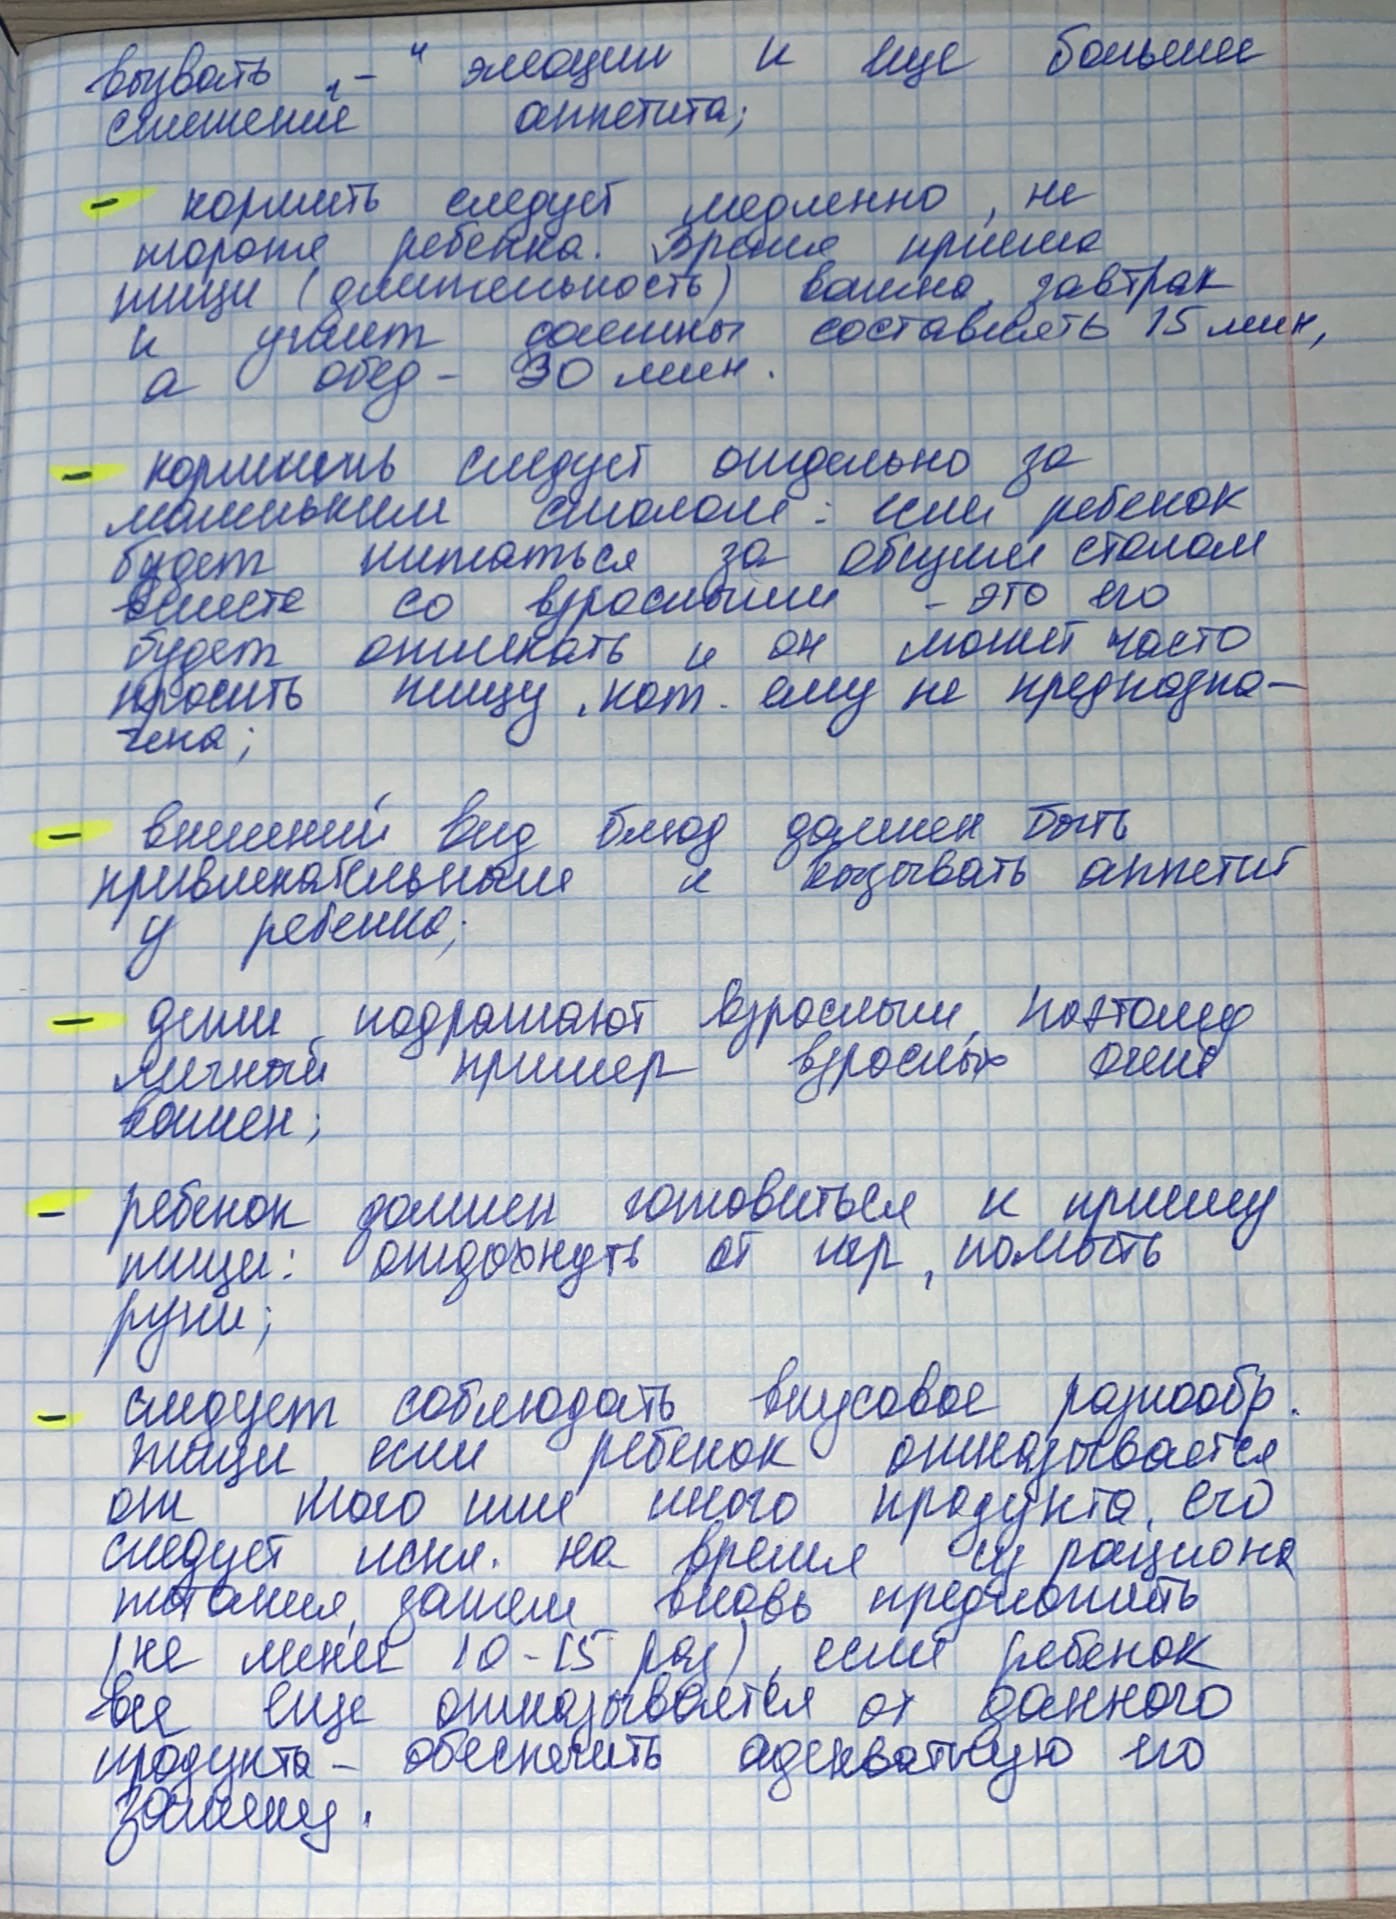 вызвать „-“ эмоции и еще большее
снижение аппетита;
- кормить следует медленно, не
торопя ребенка. Время приема
пищи (длительность) важно, завтрак
и ужин должны составлять 15 мин,
а обед - 30 мин.
- кормить следует отдельно за
маленьким столом: если ребенок
будет питаться за общим столом
вместе со взрослыми - это его
будет отвлекать и он может часто
просить пищу, кот. ему не предназна-
чена;
- внешний вид блюд должен быть
привлекательным и вызывать аппетит
у ребенка;
- дети подражают взрослым, поэтому
личный пример взрослых очень
важен;
- ребенок должен готовиться к приему
пищи: отдохнуть от игр, помыть
руки;
- следует соблюдать вкусовое разнообр.
пищи, если ребенок отказывается
от того или иного продукта, его
следует искл. на время из рациона
питания, затем вновь предложить
(не менее 10-15 раз), если ребенок
все еще отказывается от данного
продукта - обеспечить адекватную его
замену.